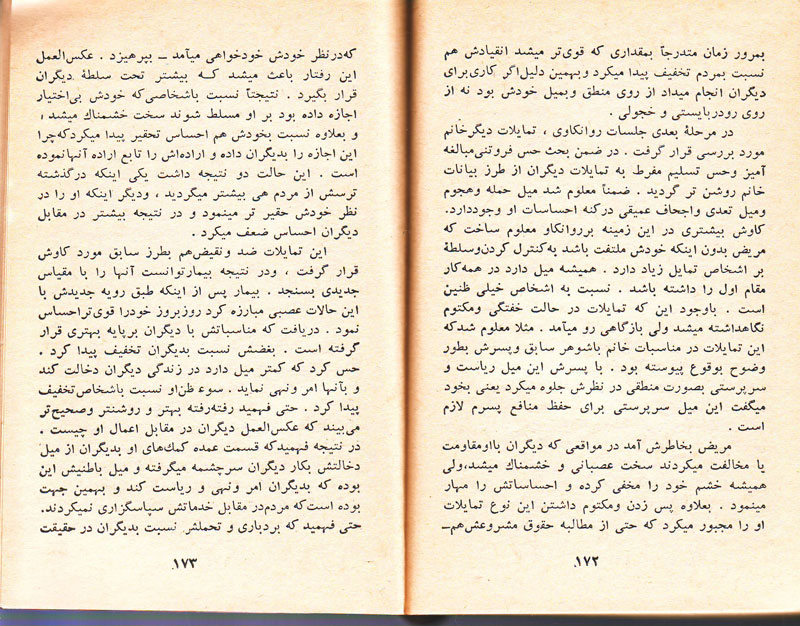 بمرور زمان متدرجآ بمقداری که قوی‌تر میشد انقیادش هم
نسبت بمردم تخفیف پیدا میکرد وبهمین دلیل‌اگر کاری‌برای
دیگران انجام میداد از روی منطق وبمیل خودش بود نه از
روی رودربایستی و خجولی .
در مرحلهٔ بعدی جلسات روانکاوی ، تمایلات دیگرخانم
مورد بررسی قرار گرفت . در ضمن بحث حس فروتنی‌مبالغه
آمیز وحس تسلیم مفرط به تمایلات دیگران از طرز بیانات
خانم روشن تر گردید . ضمنآ معلوم شد میل حمله وهجوم
ومیل تعدی واجحاف عمیقی درکنه احساسات او وجوددارد.
کاوش بیشتری در این زمینه برروانکاو معلوم ساخت که
مریض بدون اینکه خودش ملتفت باشد به‌کنترل کردن‌وسلطهٔ
بر اشخاص تمایل زیاد دارد . همیشه میل دارد در همه‌کار
مقام اول را داشته باشد . نسبت به اشخاص خیلی ظنین
است . باوجود این که تمایلات در حالت خفتگی ومکتوم
نگاهداشته میشد ولی بازگاهی رو میآمد . مثلا معلوم شدکه
این تمایلات در مناسبات خانم باشوهر سابق وپسرش بطور
وضوح بوقوع پیوسته بود . با پسرش این میل ریاست و
سرپرستی بصورت منطقی در نظرش جلوه میکرد یعنی بخود
میگفت این میل سرپرستی برای حفظ منافع پسرم لازم
است .
مریض بخاطرش آمد در مواقعی که دیگران بااومقاومت
یا مخالفت میکردند سخت عصبانی و خشمناك میشد،ولی
همیشه خشم خود را مخفی کرده و احساساتش را مهار
مینمود . بعلاوه پس زدن ومکتوم داشتن این نوع تمایلات
او را مجبور میکرد که حتی از مطالبه حقوق مشروعش‌هم–
۱۷۲
که‌درنظر خودش خودخواهی میآمد – بپرهیزد . عکس‌العمل
این رفتار باعث میشد کـه بیشتر تحت سلطهٔ دیگران
قرار بگیرد . نتیجتآ نسبت باشخاصی‌که خودش بی‌اختیار
اجازه داده بود بر او مسلط شوند سخت خشمناك میشد ؛
و بعلاوه نسبت بخودش هم احساس تحقیر پیدا میکردکه‌چرا
این اجازه را بدیگران داده و اراده‌اش را تابع اراده آنهانموده
است . این حالت دو نتیجه داشت یکی اینکه درگذشته
ترسش از مردم هی بیشتر میگردید ، ودیگر اینکه او را در
نظر خودش حقیر تر مینمود و در نتیجه بیشتر در مقابل
دیگران احساس ضعف میکرد .
این تمایلات ضد ونقیض‌هم بطرز سابق مورد کاوش
قرار گرفت ، ودر نتیجه بیمارتوانست آنها را با مقیاس
جدیدی بسنجد . بیمار پس از اینکه طبق رویه جدیدش با
این حالات عصبی مبارزه کرد روزبروز خودرا قوی‌تراحساس
نمود . دریافت که مناسباتش با دیگران برپایه بهتری قرار
گرفته است . بغضش نسبت بدیگران تخفیف پیدا کرد .
حس کرد که کمتر میل دارد در زندگی دیگران دخالت کند
و بآنها امر ونهی نماید . سوء ظن‌او نسبت باشخاص‌تخفیف
پیدا کرد . حتی فهمید رفته‌رفته بهتر و روشنتر وصحیح‌تر
می‌بیند که عکس‌العمل دیگران در مقابل اعمال او چیست .
در نتیجه فهمیدکه قسمت عمده کمك‌های او بدیگران از میل
دخالتش بکار دیگران سرچشمه میگرفته و میل باطنیش این
بوده که بدیگران امر ونهی و ریاست کند و بهمین جهت
بوده است‌که مردم‌در مقابل خدماتش سپاسگزاری نمیکردند.
حتی فهمید که بردباری و تحملش نسبت بدیگران در حقیقت
۱۷۳